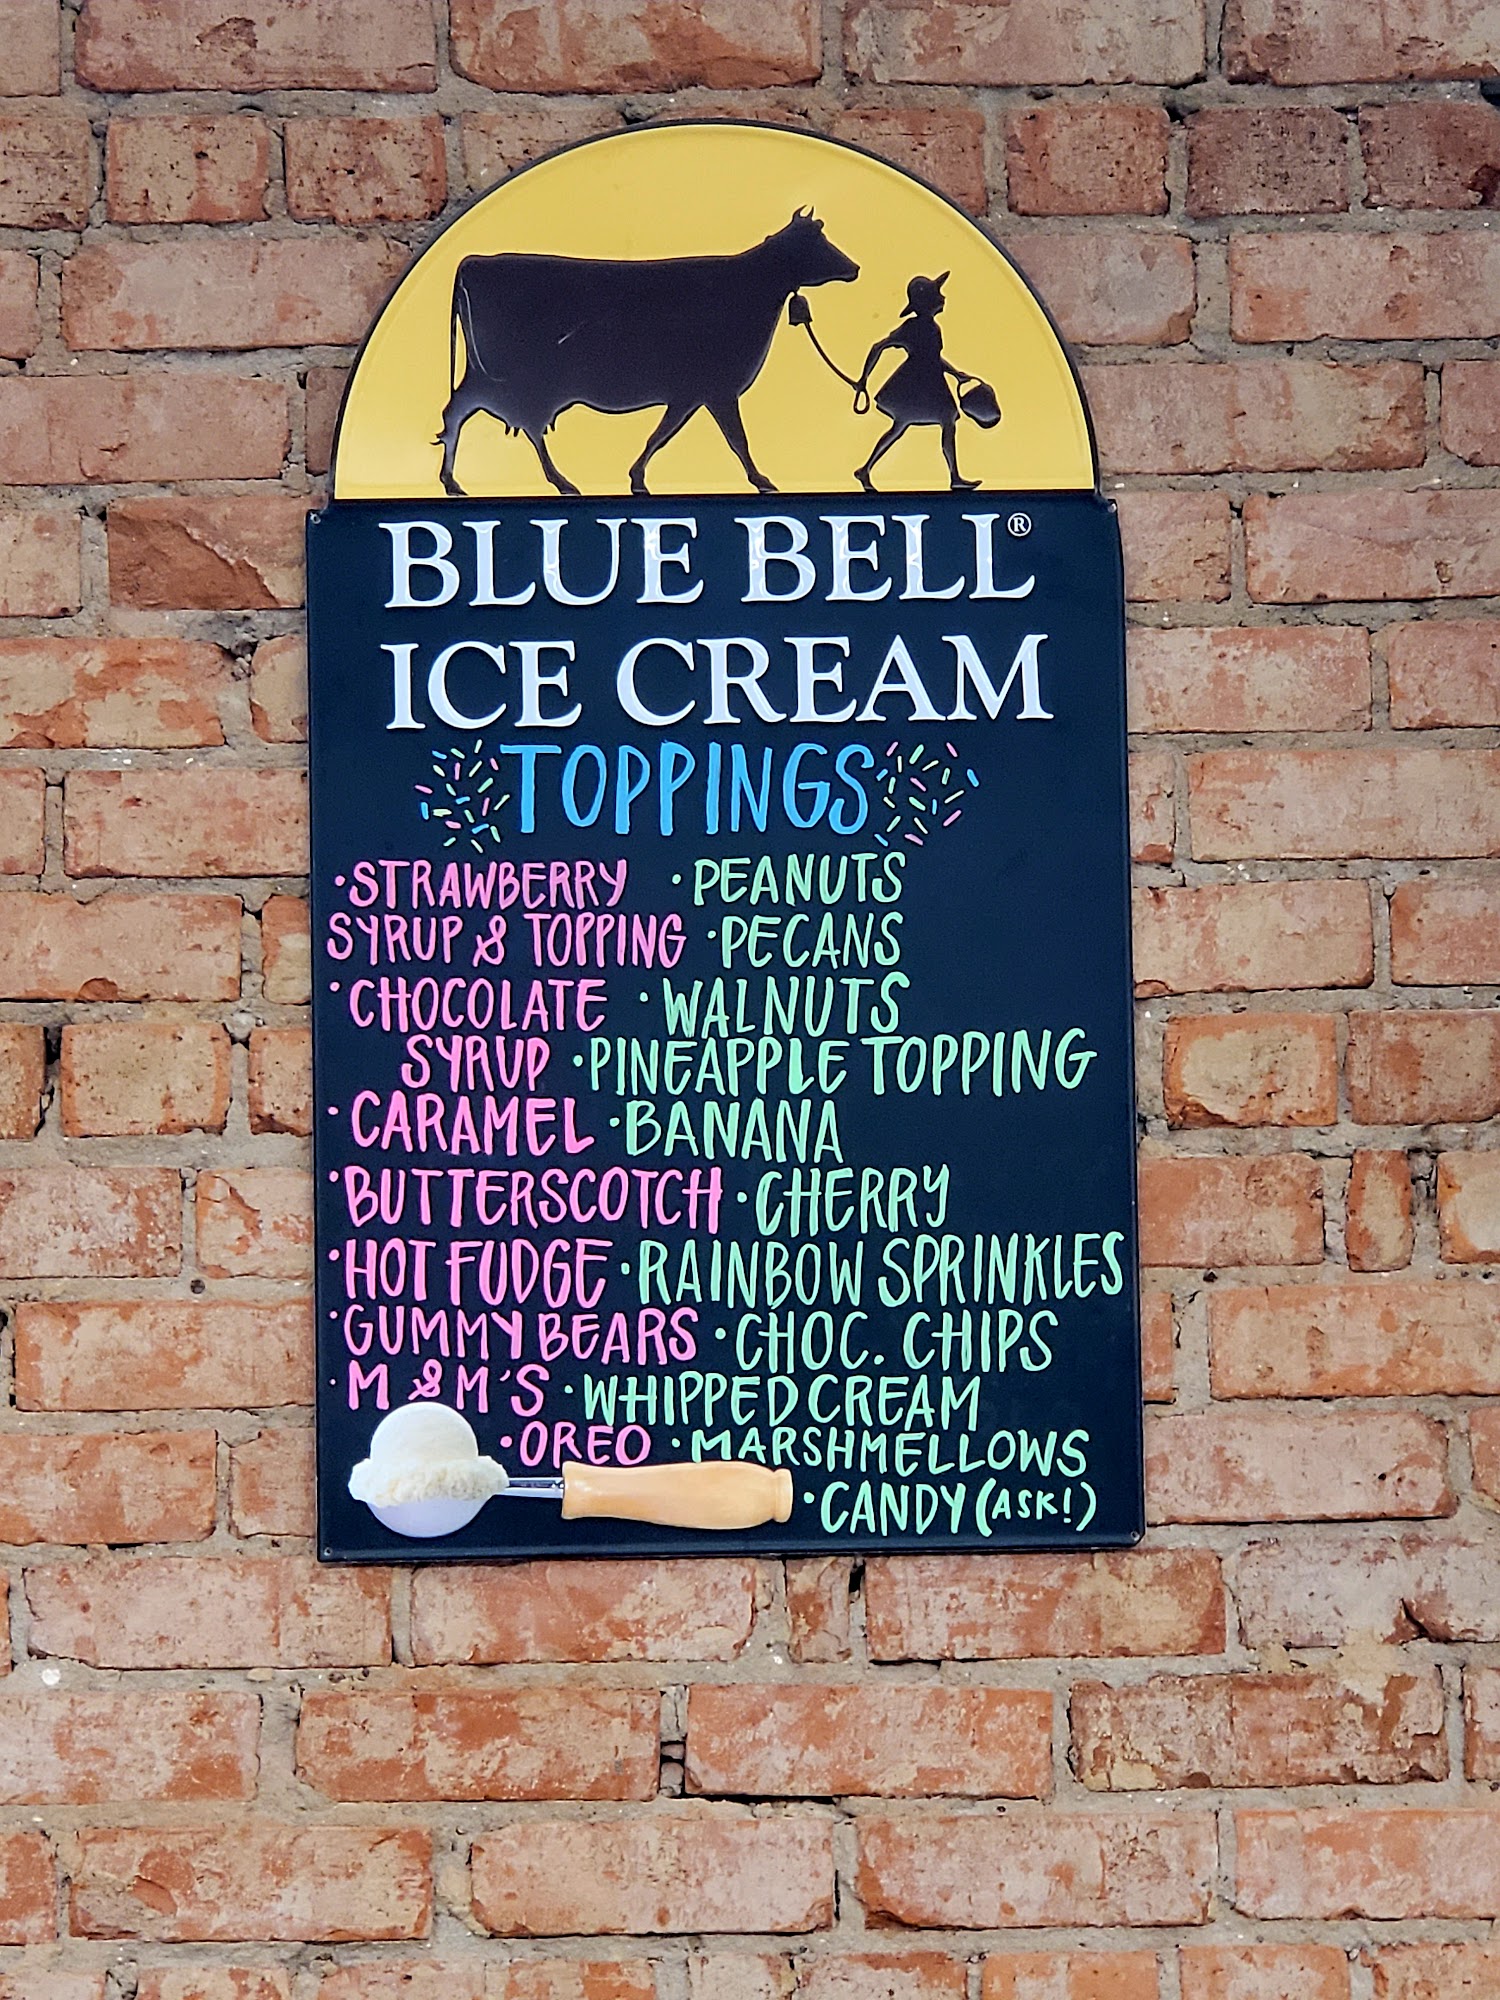 BLUE BELL®
ICE CREAM
TOPPINGS
·STRAWBERRY
SYRUP & TOPPING
·CHOCOLATE
SYRUP
·CARAMEL
·BUTTERSCOTCH
·HOT FUDGE
·GUMMY BEARS
·M&M'S
·OREO
·PEANUTS
·PECANS
·WALNUTS
·PINEAPPLE TOPPING
·BANANA
·CHERRY
·RAINBOW SPRINKLES
·CHOC. CHIPS
·WHIPPED CREAM
·MARSHMELLOWS
·CANDY (ASK!)